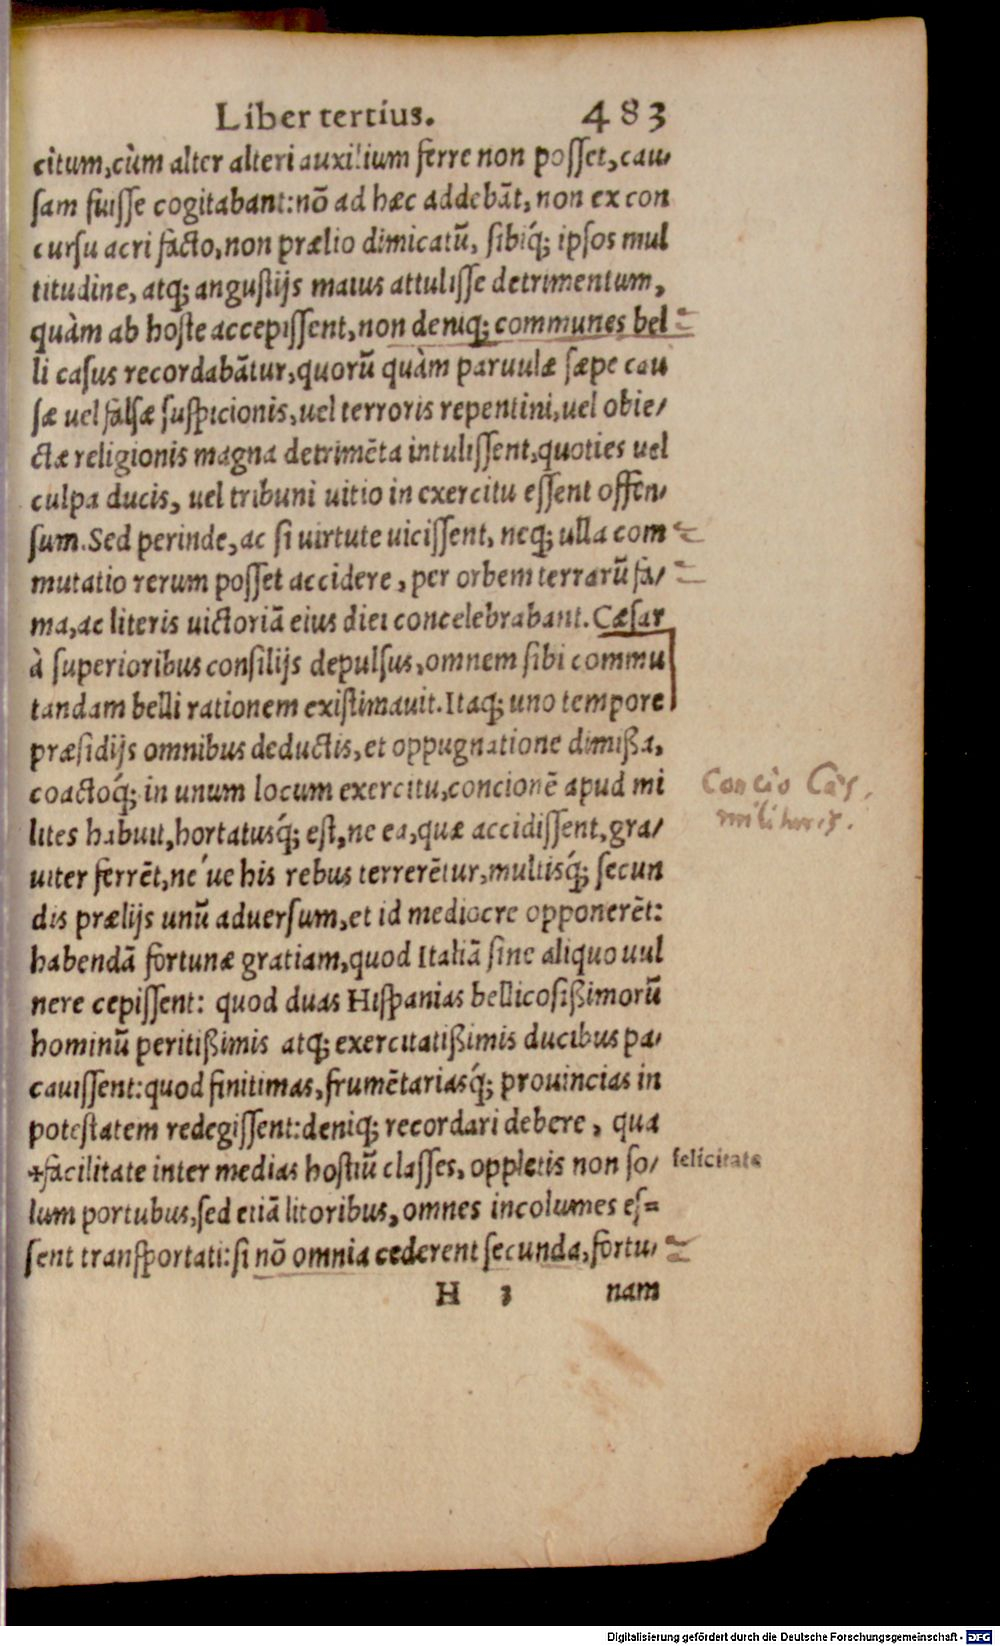 Liber tertius. 483
citum, cùm alter alteri auxilium ferre non posset, cau/
sam fuisse cogitabant: nõ ad hæc addebãt, non ex con
cursu acri facto, non prælio dimicatũ, sibiq́; ipsos mul
titudine, atq; angustijs maius attulisse detrimentum,
quàm ab hoste accepissent, non deniq; communes bel
li casus recordabãtur, quorũ quàm paruulæ sæpe cau
sæ uel falsæ suspicionis, uel terroris repentini, uel obie/
ctæ religionis magna detrimẽta intulissent, quoties uel
culpa ducis, uel tribuni uitio in exercitu essent offen/
sum. Sed perinde, ac si uirtute uicissent, neq; ulla com
mutatio rerum posset accidere, per orbem terrarũ fa/
ma, ac literis uictoriã eius diei concelebrabant. Cæsar
à superioribus consilijs depulsus, omnem sibi commu
tandam belli rationem existimauit. Itaq; uno tempore
præsidijs omnibus deductis, et oppugnatione dimißa,
coactoq́; in unum locum exercitu, concionẽ apud mi
lites habuit, hortatusq́; est, ne ea, quæ accidissent, gra/
uiter ferrẽt, né ue his rebus terrerẽtur, multisq́; secun
dis prælijs unũ aduersum, et id mediocre opponerẽt:
habendã fortunæ gratiam, quod Italiã sine aliquo uul
nere cepissent: quod duas Hispanias bellicosißimorũ
hominũ peritißimis atq; exercitatißimis ducibus pa/
cauissent: quod finitimas, frumẽtariasq́; prouincias in
potestatem redegissent: deniq; recordari debere, qua
✢facilitate inter medias hostiũ classes, oppletis non so/
lum portubus, sed etiã litoribus, omnes incolumes es=
sent transportati: si nõ omnia cederent secunda, fortu/
H 3 nam
Concio Cæs.
felicitate
Digitalisierung gefördert durch die Deutsche Forschungsgemeinschaft - DFG